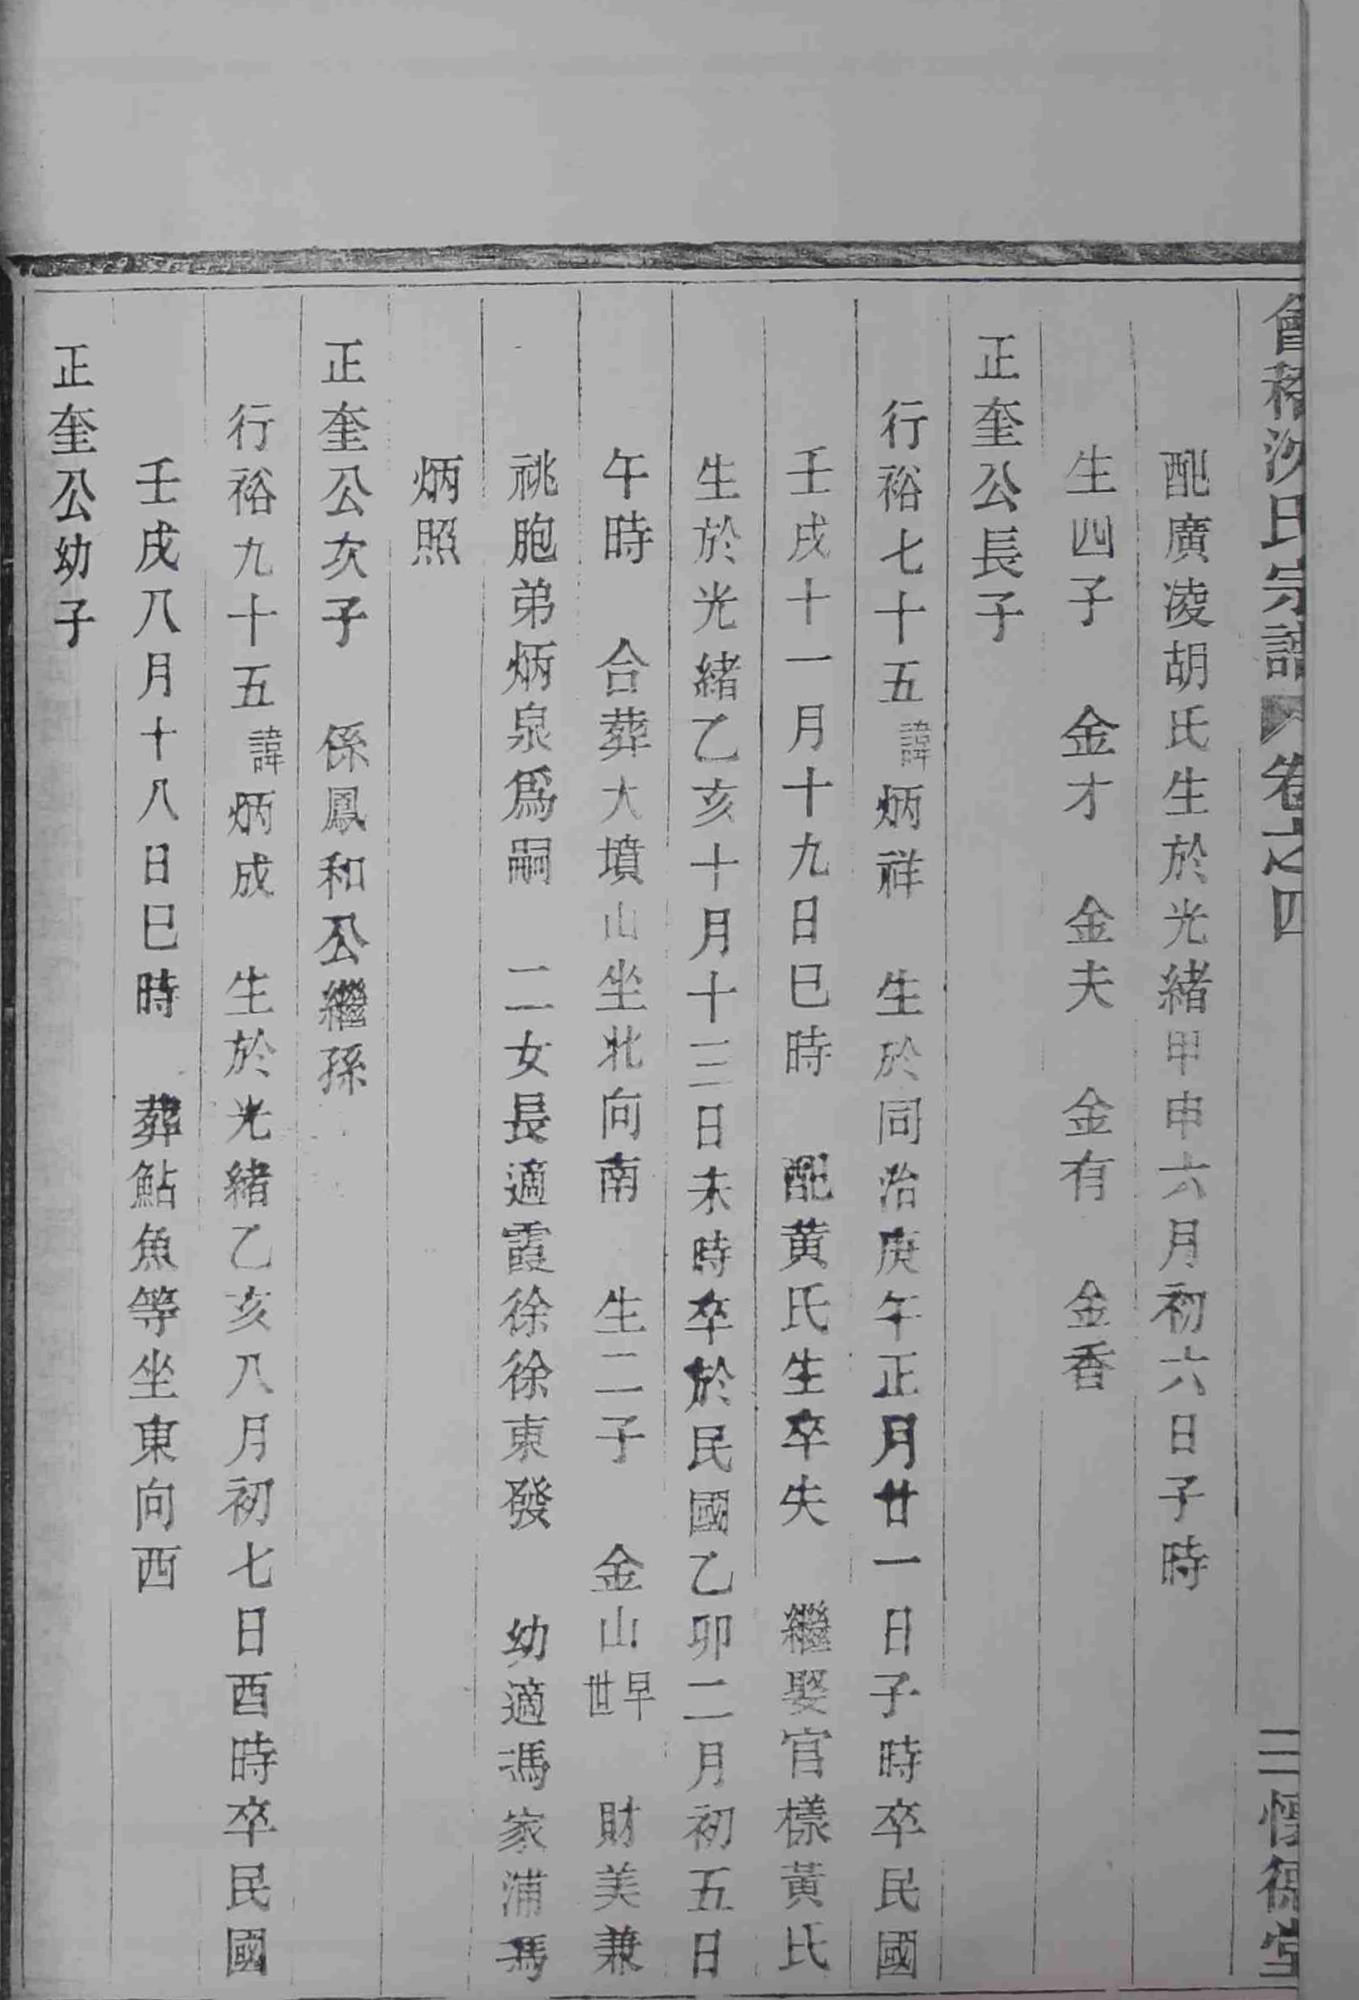 會稽沈氏宗譜 卷之四 三 懷德堂
配廣凌胡氏生於光緒甲申六月初六日子時
生四子 金才 金夫 金有 金香
正奎公長子
行裕七十五諱炳祥 生於同治庚午正月廿一日子時卒民國
壬戌十一月十九日巳時 配黄氏生卒失 繼娶官樣黃氏
生於光緒乙亥十月十三日未時卒於民國乙卯二月初五日
午時 合葬大墳山坐北向南 生二子 金山早世 財美兼
祧胞弟炳泉爲嗣 二女長適霞徐徐東發 幼適馮家浦馮
炳照
正奎公次子 係鳳和公繼孫
行裕九十五諱炳成 生於光緒乙亥八月初七日酉時卒民國
壬戌八月十八日巳時 葬鮎魚等坐東向西
正奎公幼子